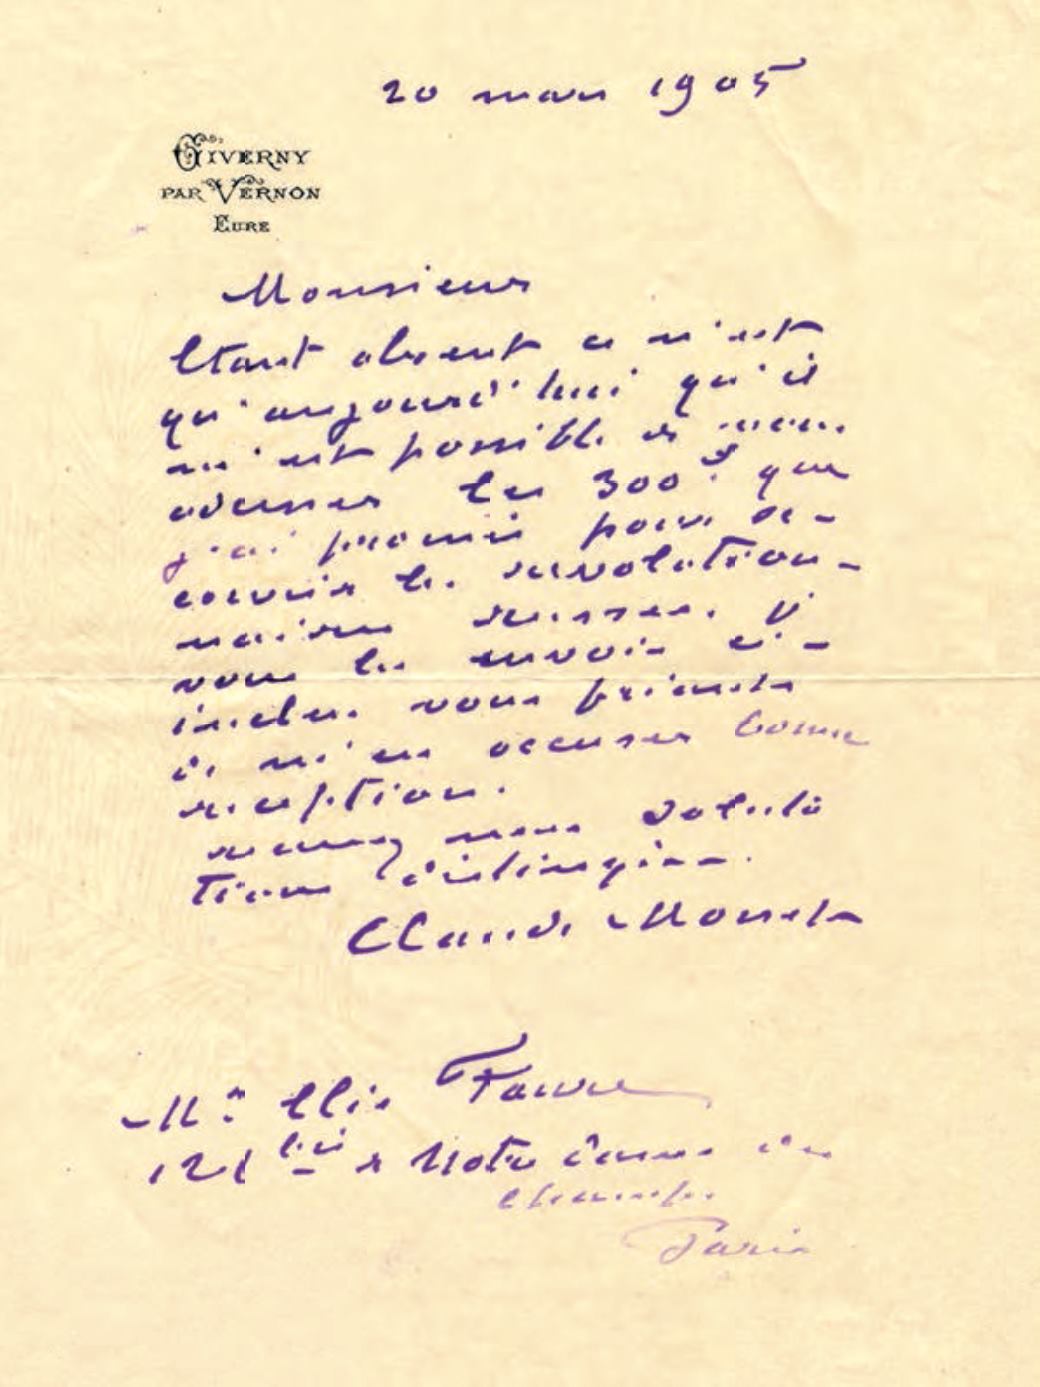 20 mars 1905
GIVERNY
PAR VERNON
EURE
Monsieur
Etant absent ce n'est
qu'aujourd'hui qu'il
m'est possible de vous
adresser les 300 f. que
j'ai promis pour se-
courir les revolution-
naires russes. Je
vous les envoie ci-
inclus vous priant
de m'en accuser bonne
reception.
recevez mes saluta
tions distinguées.
Claude Monet
Mr. Elie Faure
121 bis r Notre Dame des
champs
Paris